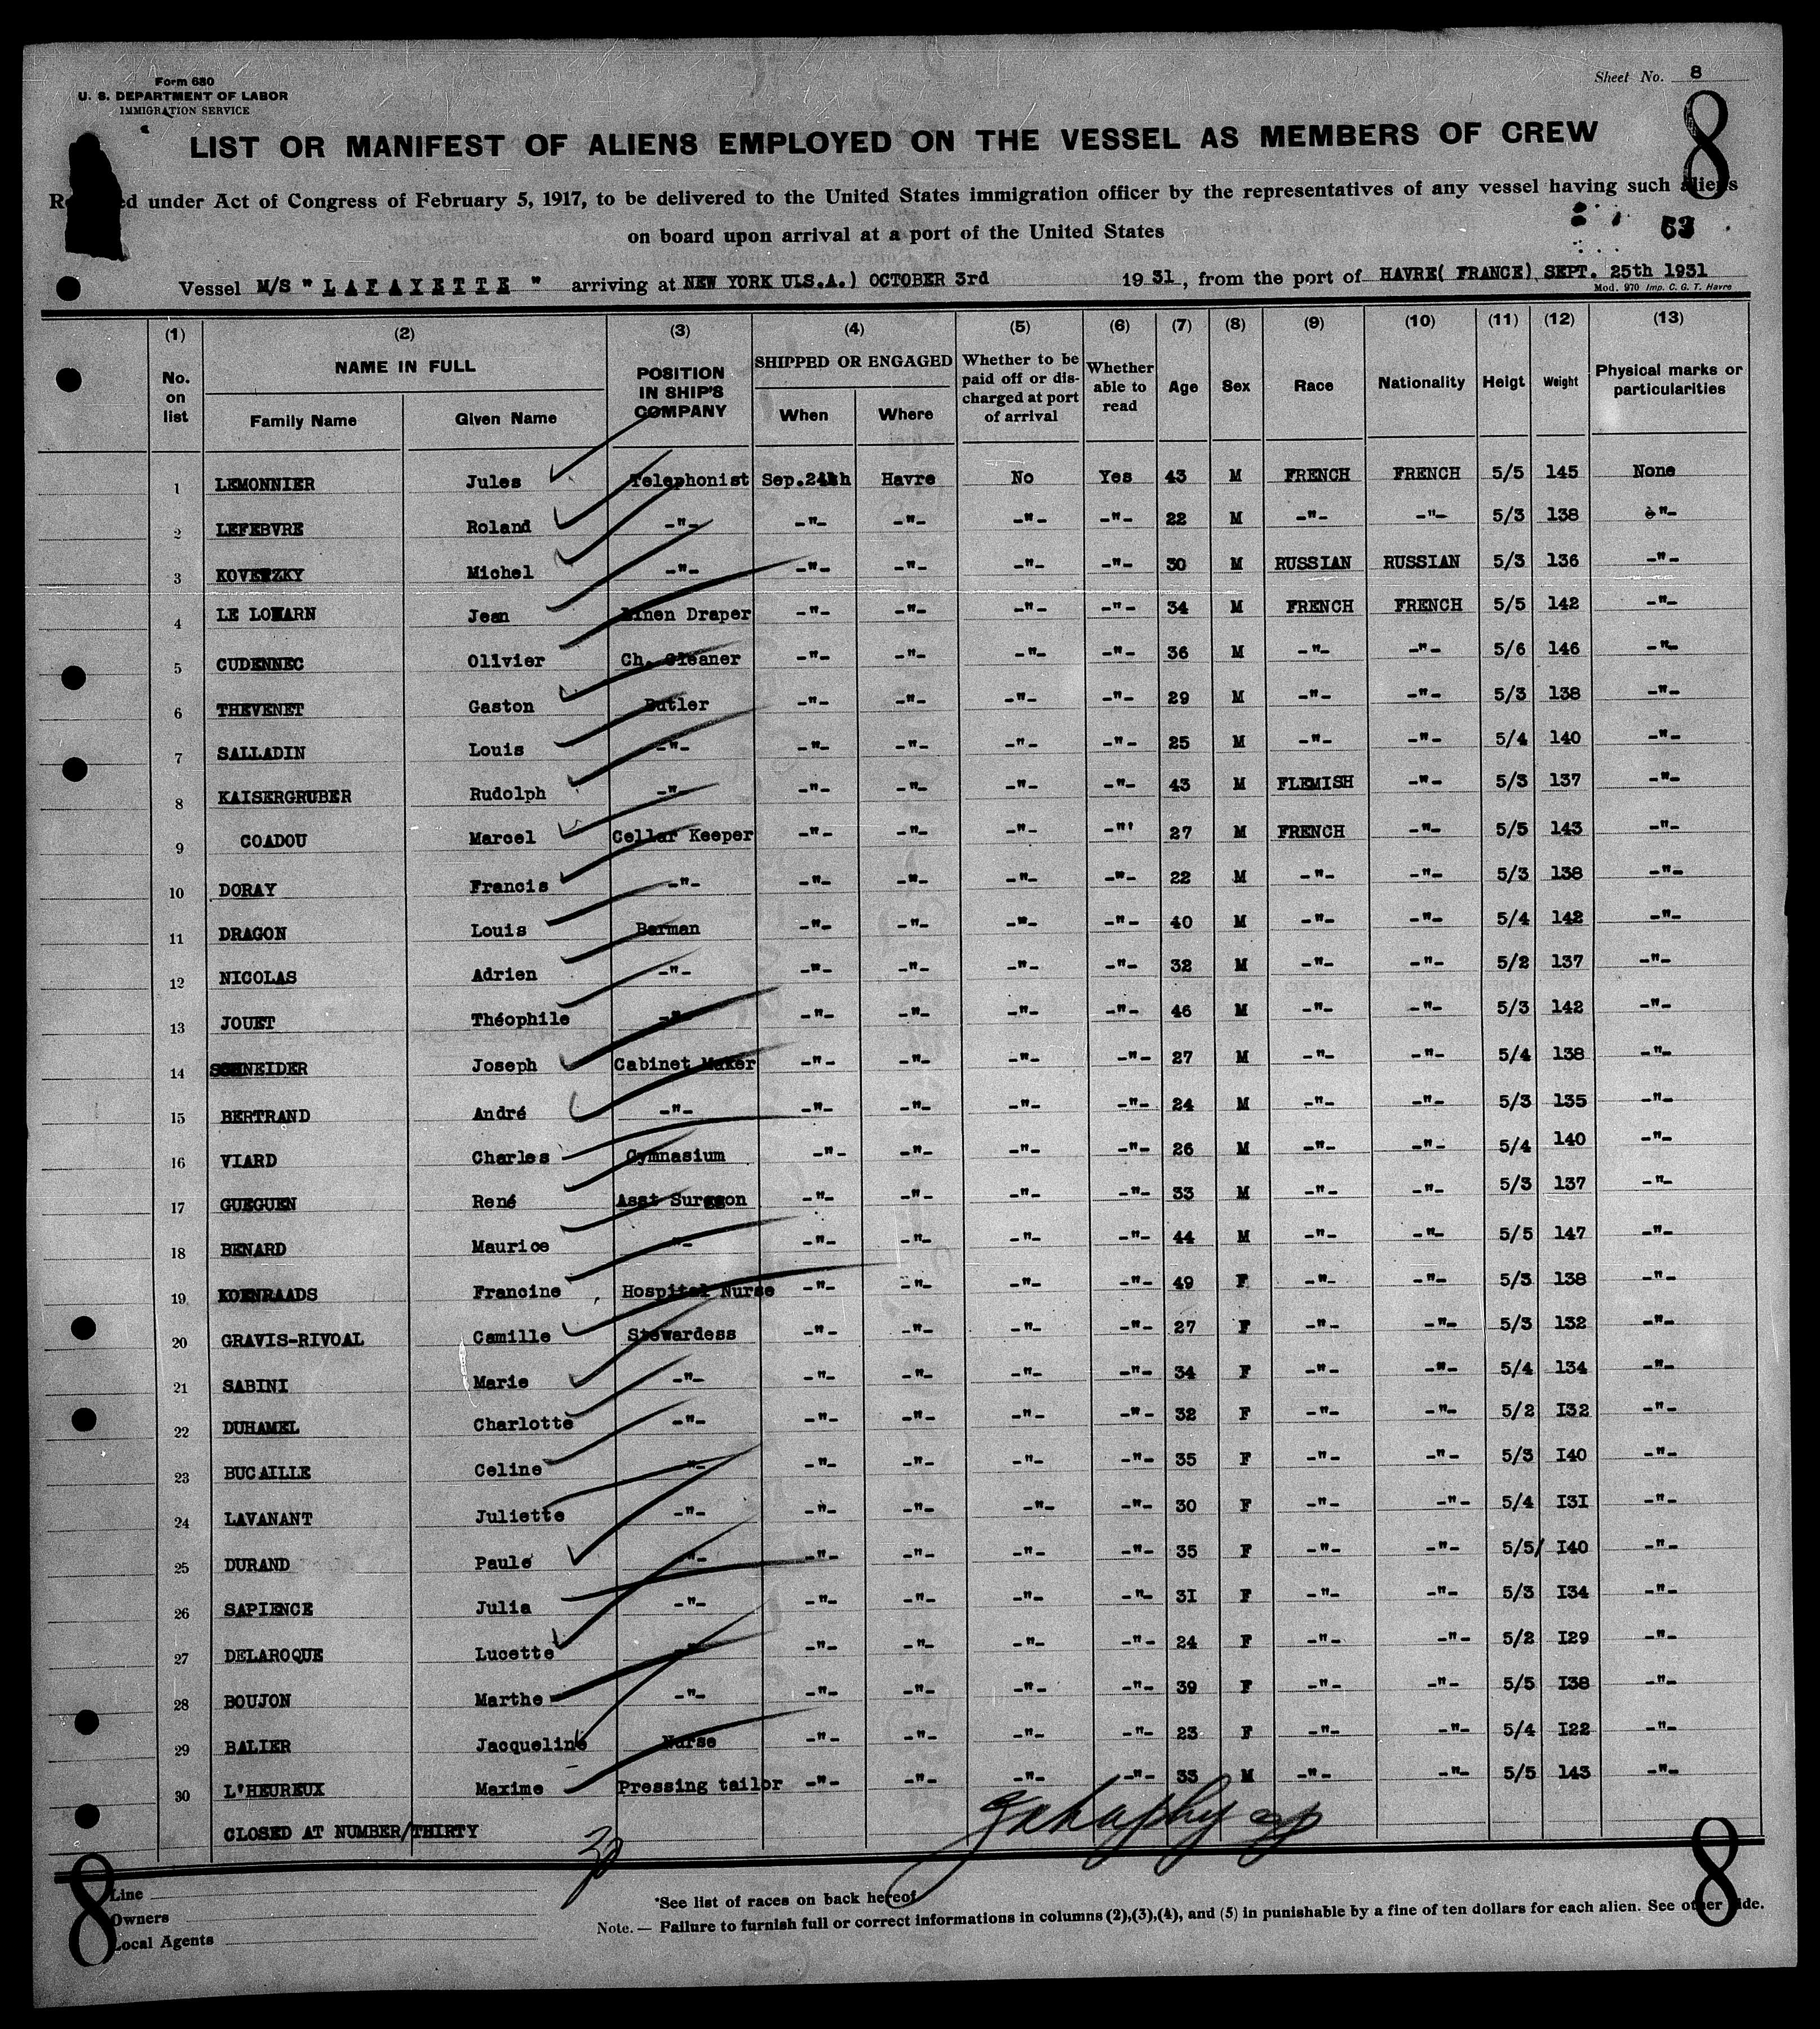 Form 680
U. S. DEPARTMENT OF LABOR
IMMIGRATION SERVICE
Sheet No. 8
8
LIST OR MANIFEST OF ALIENS EMPLOYED ON THE VESSEL AS MEMBERS OF CREW
ed under Act of Congress of February 5, 1917, to be delivered to the United States immigration officer by the representatives of any vessel having such aliens
on board upon arrival at a port of the United States
53
Vessel M/S " LAFAYETTE " arriving at NEW YORK ULS.A.) OCTOBER 3rd 1931, from the port of HAVRE( FRANCE) SEPT. 25th 1931
Mod. 970 Imp. C. G. T. Havre
(1) (2) (3) (4) (5) (6) (7) (8) (9) (10) (11) (12) (13)
No. on list NAME IN FULL POSITION IN SHIP'S COMPANY SHIPPED OR ENGAGED Whether to be paid off or discharged at port of arrival Whether able to read Age Sex Race Nationality Heigt Weight Physical marks or particularities
Family Name Given Name When Where
1 LEMONNIER Jules Telephonist Sep.24th Havre No Yes 43 M FRENCH FRENCH 5/5 145 None
2 LEFEBVRE Roland -"- -"- -"- -"- -"- 22 M -"- -"- 5/3 138 è"-
3 KOVETZKY Michel -"- -"- -"- -"- -"- 30 M RUSSIAN RUSSIAN 5/3 136 -"-
4 LE LOWARN Jean Linen Draper -"- -"- -"- -"- 34 M FRENCH FRENCH 5/5 142 -"-
5 CUDENNEC Olivier Ch. Cleaner -"- -"- -"- -"- 36 M -"- -"- 5/6 146 -"-
6 THEVENET Gaston Butler -"- -"- -"- -"- 29 M -"- -"- 5/3 138 -"-
7 SALLADIN Louis -"- -"- -"- -"- -"- 25 M -"- -"- 5/4 140 -"-
8 KAISERGRUBER Rudolph -"- -"- -"- -"- -"- 43 M FLEMISH -"- 5/3 137 -"-
9 COADOU Marcel Cellar Keeper -"- -"- -"- -"' 27 M FRENCH -"- 5/5 143 -"-
10 DORAY Francis -"- -"- -"- -"- -"- 22 M -"- -"- 5/3 138 -"-
11 DRAGON Louis Barman -"- -"- -"- -"- 40 M -"- -"- 5/4 142 -"-
12 NICOLAS Adrien -"- -"- -"- -"- -"- 32 M -"- -"- 5/2 137 -"-
13 JOUET Théophile -"- -"- -"- -"- -"- 46 M -"- -"- 5/3 142 -"-
14 SCHNEIDER Joseph Cabinet Maker -"- -"- -"- -"- 27 M -"- -"- 5/4 138 -"-
15 BERTRAND André -"- -"- -"- -"- -"- 24 M -"- -"- 5/3 135 -"-
16 VIARD Charles Gymnasium -"- -"- -"- -"- 26 M -"- -"- 5/4 140 -"-
17 GUEGUEN René Asst Surgeon -"- -"- -"- -"- 33 M -"- -"- 5/3 137 -"-
18 BENARD Maurice -"- -"- -"- -"- -"- 44 M -"- -"- 5/5 147 -"-
19 KOENRAADS Francine Hospital Nurse -"- -"- -"- -"- 49 F -"- -"- 5/3 138 -"-
20 GRAVIS-RIVOAL Camille Stewardess -"- -"- -"- -"- 27 F -"- -"- 5/3 132 -"-
21 SABINI Marie -"- -"- -"- -"- -"- 34 F -"- -"- 5/4 134 -"-
22 DUHAMEL Charlotte -"- -"- -"- -"- -"- 32 F -"- -"- 5/2 I32 -"-
23 BUCAILLE Celine -"- -"- -"- -"- -"- 35 F -"- -"- 5/3 I40 -"-
24 LAVANANT Juliette -"- -"- -"- -"- -"- 30 F -"- -"- 5/4 I3I -"-
25 DURAND Paule -"- -"- -"- -"- -"- 35 F -"- -"- 5/5/ I40 -"-
26 SAPIENCE Julia -"- -"- -"- -"- -"- 3I F -"- -"- 5/3 I34 -"-
27 DELAROQUE Lucette -"- -"- -"- -"- -"- 24 F -"- -"- 5/2 I29 -"-
28 BOUJON Marthe -"- -"- -"- -"- -"- 39 F -"- -"- 5/5 I38 -"-
29 BALIER Jacqueline Nurse -"- -"- -"- -"- 23 F -"- -"- 5/4 I22 -"-
30 L'HEUREUX Maxime Pressing tailor -"- -"- -"- -"- 33 M -"- -"- 5/5 143 -"-
CLOSED AT NUMBER/THIRTY
30
8 8
Line
Owners
Local Agents
*See list of races on back hereof
Note. — Failure to furnish full or correct informations in columns (2),(3),(4), and (5) in punishable by a fine of ten dollars for each alien. See other side.